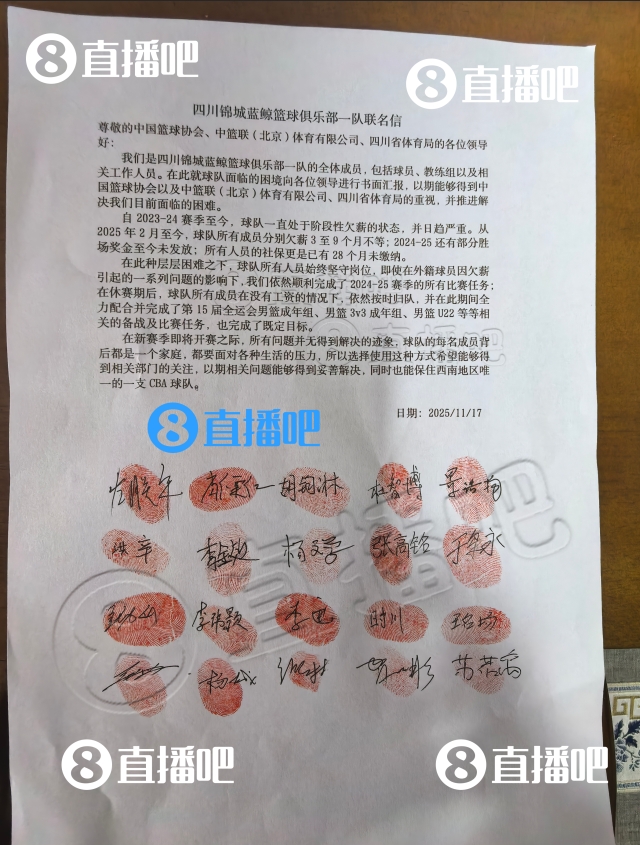 8直播吧
8直播吧
四川锦城蓝鲸篮球俱乐部一队联名信
尊敬的中国篮球协会、中篮联（北京）体育有限公司、四川省体育局的各位领导
好：
我们是四川锦城蓝鲸篮球俱乐部一队的全体成员，包括球员、教练组以及相
关工作人员。在此就球队面临的困境向各位领导进行书面汇报，以期能够得到中
国篮球协会以及中篮联（北京）体育有限公司、四川省体育局的重视，并推进解
决我们目前面临的困难。
自 2023-24 赛季至今，球队一直处于阶段性欠薪的状态，并日趋严重。从
2025 年 2 月至今，球队所有成员分别欠薪 3 至 9 个月不等；2024-25 还有部分胜
场奖金至今未发放；所有人员的社保更是已有 28 个月未缴纳。
在此种层层困难之下，球队所有人员始终坚守岗位，即使在外籍球员因欠薪
引起的一系列问题的影响下，我们依然顺利完成了 2024-25 赛季的所有比赛任务；
在休赛期后，球队所有成员在没有工资的情况下，依然按时归队，并在此期间全
力配合并完成了第 15 届全运会男篮成年组、男篮 3v3 成年组、男篮 U22 等等相
关的备战及比赛任务，也完成了既定目标。
在新赛季即将开赛之际，所有问题并无得到解决的迹象，球队的每名成员背
后都是一个家庭，都要面对各种生活的压力，所以选择使用这种方式希望能够得
到相关部门的关注，以期相关问题能够得到妥善解决，同时也能保住西南地区唯
一的一支 CBA 球队。
日期：2025/11/17
8直播吧
杜智博 景浩杨
张高铭
李祎颖 李迅 时川
8直播吧
8直播吧
8直播吧